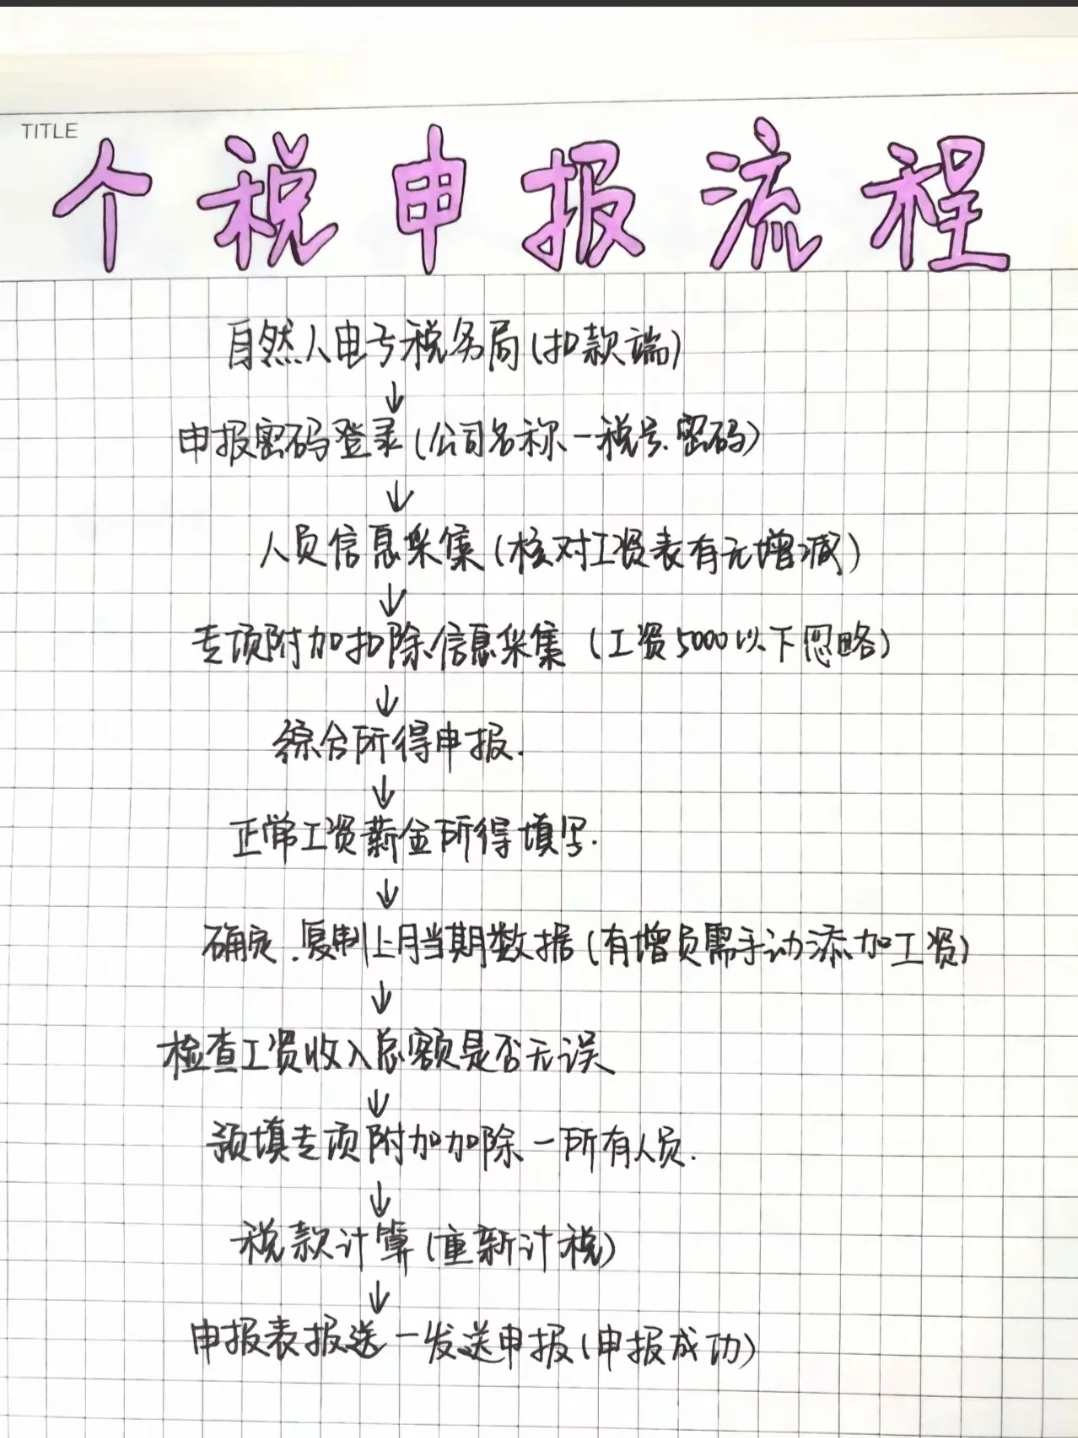 TITLE
个税申报流程
自然人电子税务局(扣款端)
↓
申报密码登录(公司名称一税号.密码)
↓
人员信息采集(核对工资表有无增减)
↓
专项附加扣除信息采集(工资5000以下忽略)
↓
综合所得申报.
↓
正常工资薪金所得填写.
↓
确定.复制上月当期数据(有增员需手动添加工资)
↓
检查工资收入总额是否无误
↓
预填专项附加加除一所有人员.
↓
税款计算(重新计税)
↓
申报表报送一发送申报(申报成功)